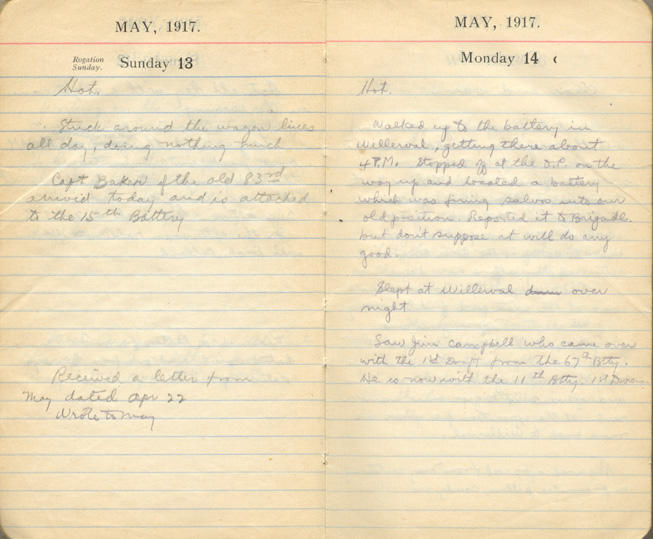 MAY, 1917.
Rogation
Sunday.
Sunday 13
Hot.
Stuck around the wagon lines
all day, doing nothing much
Capt Baker of the old 83rd
arrived today and is attached
to the 15th Battery
Received a letter from
May dated Apr 22
Wrote to May
MAY, 1917.
Monday 14
Hot.
Walked up to the battery in
Willerval, getting there about
4 P.M. Stopped off at the O.P. on the
way up and located a battery
which was firing salvos into our
old position. Reported it to Brigade.
but don't suppose it will do any
good.
Slept at Willerval over
night
Saw Jim Campbell who came over
with the 1st from the 67th Btty.
He is now with the 11th Btty. 1st